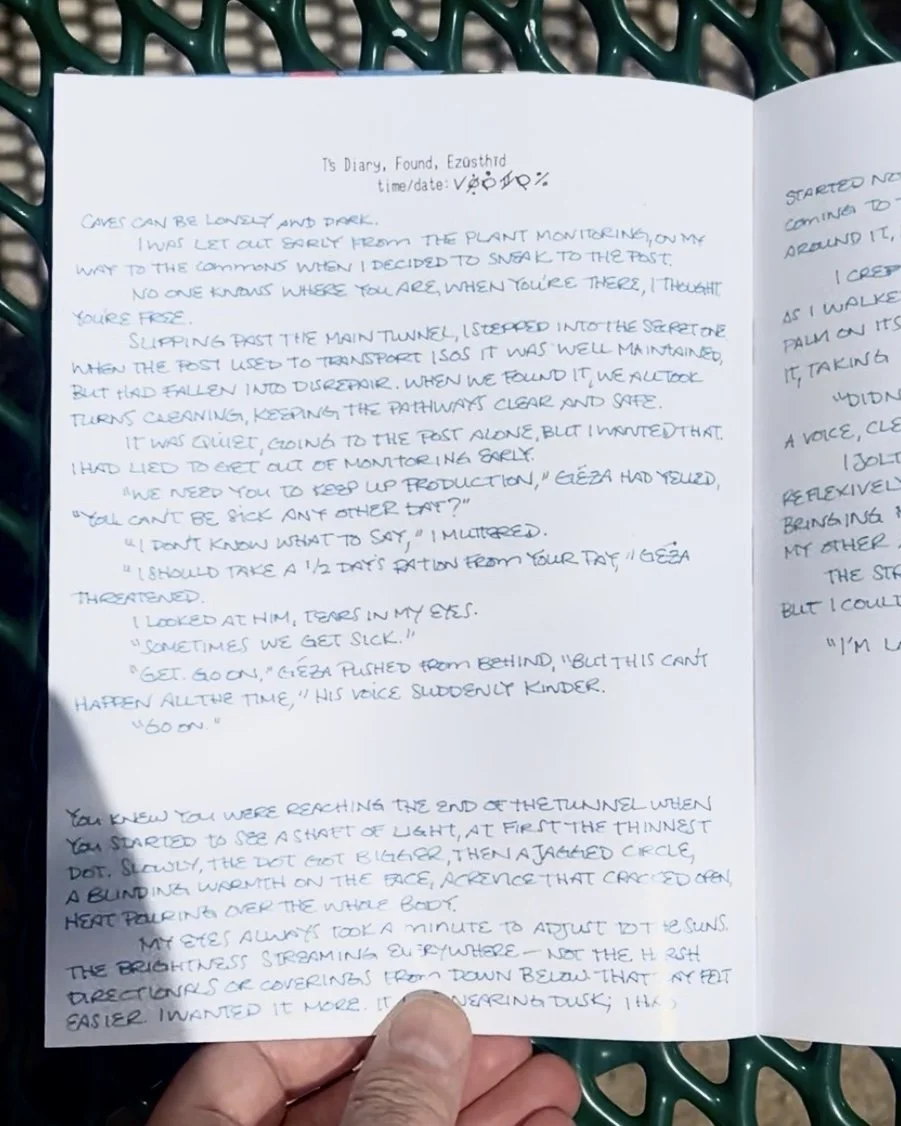 T's Diary, Found, Ezüsthíd
time/date:
CAVES CAN BE LONELY AND DARK.
I WAS LET OUT EARLY FROM THE PLANT MONITORING, ON MY
WAY TO THE COMMONS WHEN I DECIDED TO SNEAK TO THE POST.
NO ONE KNOWS WHERE YOU ARE, WHEN YOU'RE THERE, I THOUGHT
YOU'RE FREE.
SLIPPING PAST THE MAIN TUNNEL, I STEPPED INTO THE SECRET ONE
WHEN THE POST USED TO TRANSPORT ISOS IT WAS WELL MAINTAINED,
BUT HAD FALLEN INTO DISREPAIR. WHEN WE FOUND IT, WE ALL TOOK
TURNS CLEANING, KEEPING THE PATHWAYS CLEAR AND SAFE.
IT WAS QUIET, GOING TO THE POST ALONE, BUT I WANTED THAT.
I HAD LIED TO GET OUT OF MONITORING EARLY.
"WE NEED YOU TO KEEP UP PRODUCTION," GÉZA HAD YELLED,
"YOU CAN'T BE SICK ANY OTHER DAY?"
"I DON'T KNOW WHAT TO SAY," I MUTTERED.
"I SHOULD TAKE A 1/2 DAY'S RATION FROM YOUR PAY," GÉZA
THREATENED.
I LOOKED AT HIM, TEARS IN MY EYES.
"SOMETIMES WE GET SICK."
"GET. GO ON," GÉZA PUSHED FROM BEHIND, "BUT THIS CAN'T
HAPPEN ALL THE TIME," HIS VOICE SUDDENLY KINDER.
"GO ON."
YOU KNEW YOU WERE REACHING THE END OF THE TUNNEL WHEN
YOU STARTED TO SEE A SHAFT OF LIGHT, AT FIRST THE THINNEST
DOT. SLOWLY, THE DOT GOT BIGGER, THEN A JAGGED CIRCLE,
A BLINDING WARMTH ON THE FACE, A CREVICE THAT CRACKED OPEN,
HEAT POURING OVER THE WHOLE BODY.
MY EYES ALWAYS TOOK A MINUTE TO ADJUST TO THE SUNS.
THE BRIGHTNESS STREAMING EVERYWHERE — NOT THE HARSH
DIRECTIONALS OR COVERINGS FROM DOWN BELOW THAT FELT
EASIER. I WANTED IT MORE. IT NEARING DUSK; I HAD
STARTED
COMING TO
AROUND IT,
I
AS I WALKE
PALM ON ITS
IT, TAKING
"DIDN
A VOICE, CLE
I JOLT
REFLEXIVELY
BRINGING
MY OTHER
THE STR
BUT I COULD
"I'M LA